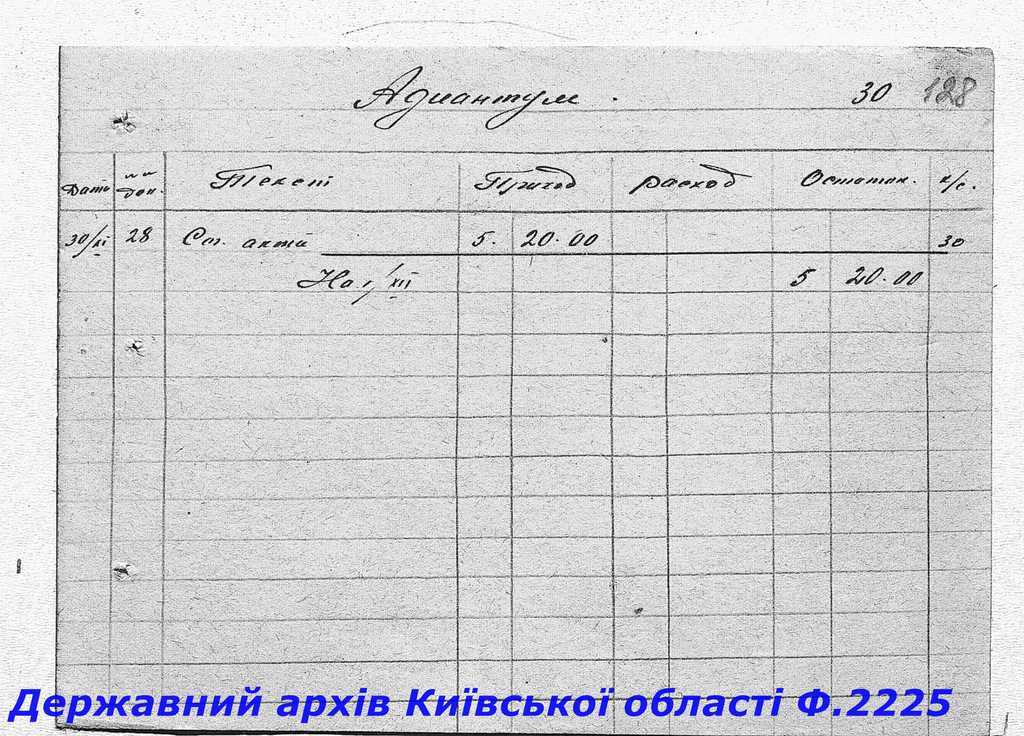 Адиантум. 30 128
Дата № № док. Текст Приход расход Остаток. к/с.
30/XI 28 Сог. акта 5. 20.00 30
На 1/XII 5 20.00
Державний архів Київської області Ф.2225